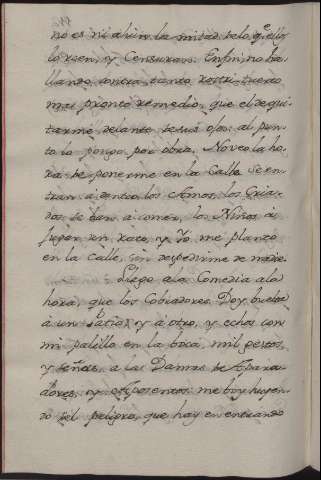 no es ni aun la mitad delo q.e ellos
lo creen, y Censuran. Enfin, no ha-
llando contra tanto rostrituerto
mas pronto remedio, que el de qui-
tarme delante de sus ojos: al pun-
to lo pongo por obra. No veo la ho-
ra de ponerme en la Calle. Se en-
tran adentro los Amos, los Cria-
dos se van à comer, los Niños à
jugar un rato, y Yo me planto
en la Calle, sin despedirme de nadie.
Llego ala Comedia ala
hora, que los Cobradores. Doy buelta
à un Patio, y à otro, y echas con
mi palillo en la boca, mil gestos,
y señas, a las Damas de Apara-
dores, y Aposentos: me boy huyen-
do del peligro, que hay en entrando